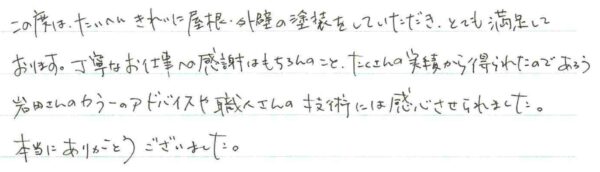 この度は、たいへんきれいに屋根・外壁の塗装をしていただき、とても満足して
おります。丁寧なお仕事への感謝はもちろんのこと、たくさんの実績から得られたのであろう
岩田さんのカラーのアドバイスや職人さんの技術には感心させられました。
本当にありがとうございました。